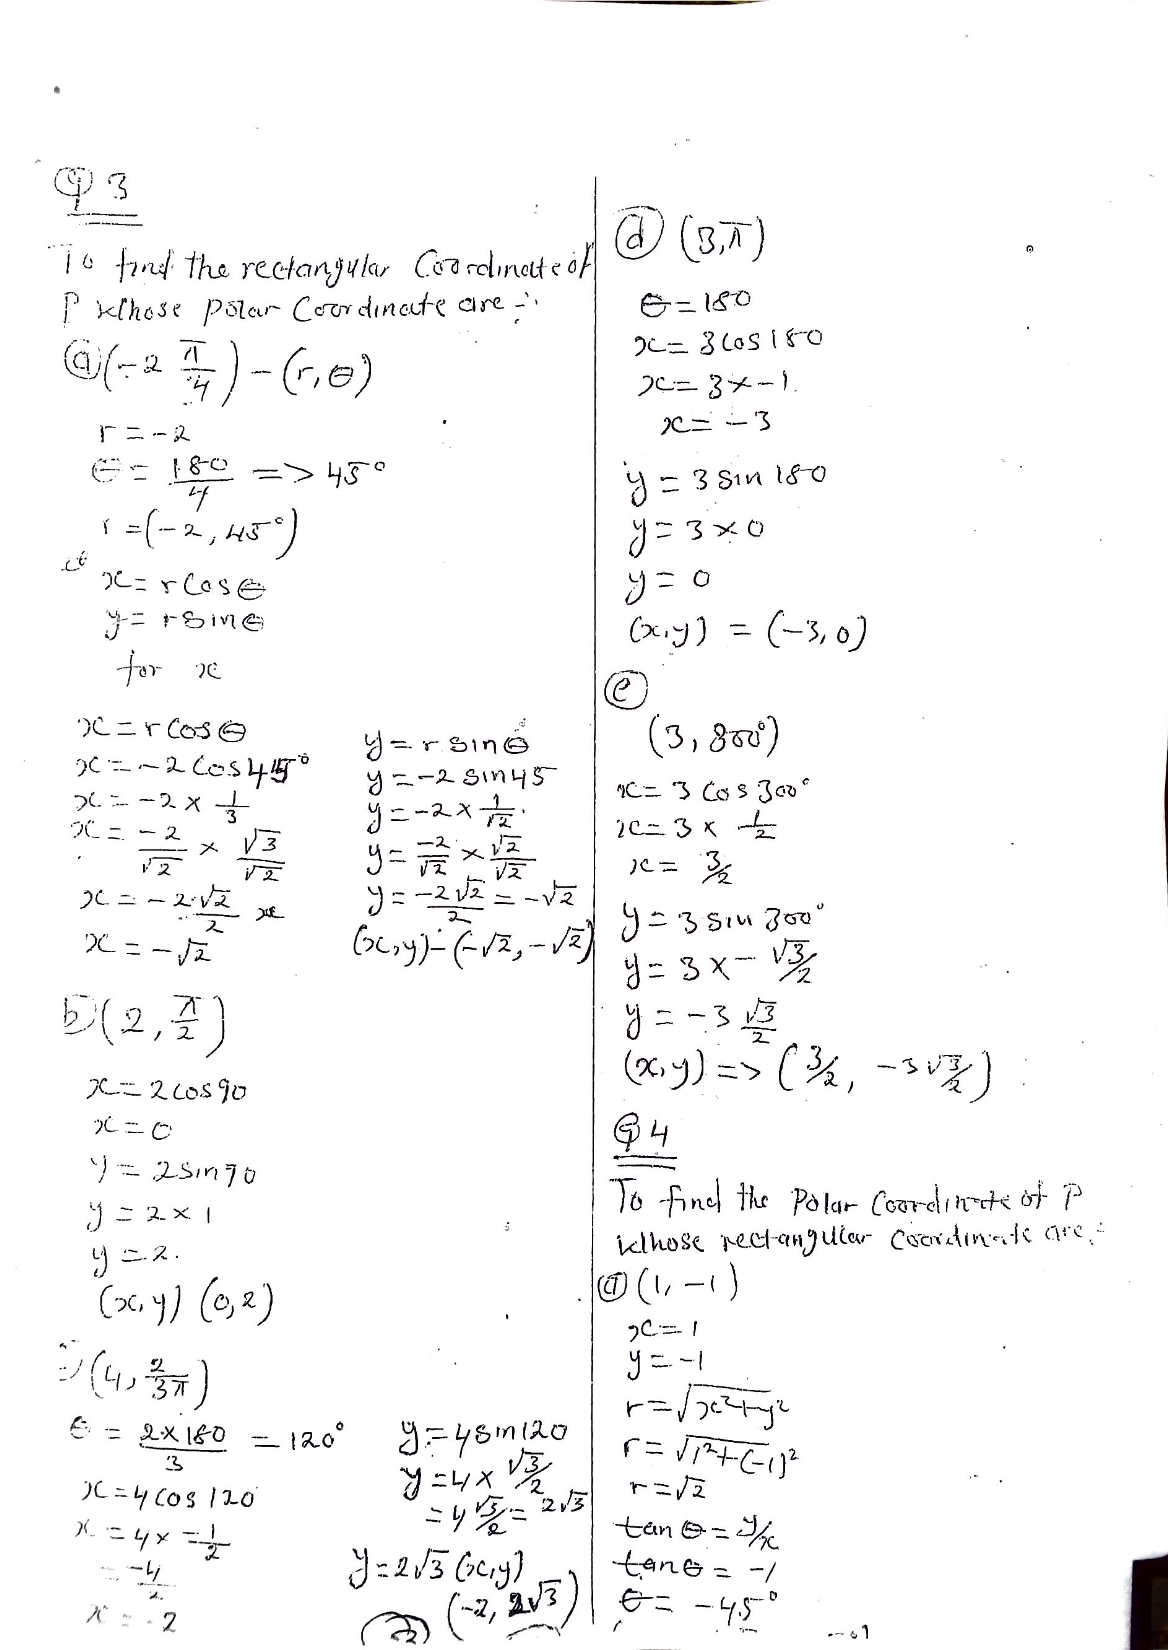 Q 3
To find the rectangular Coordinate of
P Whose polar Coordinate are :-
(a) (-2 π/4) - (r, θ)
r = -2
θ = 180/4 => 45°
r = (-2, 45°)
x = r Cos θ
y = r Sin θ
for x
x = r Cos θ
x = -2 Cos 45°
x = -2 × 1/3
x = -2/√2 × √3/√2
x = -2√2/2
x = -√2
y = r sin θ
y = -2 sin 45
y = -2 × 1/√2
y = -2/√2 × √2/√2
y = -2√2/2 = -√2
(x,y) - (-√2, -√2)
b) (2, π/2)
x = 2 cos 90
x = 0
y = 2 sin 90
y = 2 × 1
y = 2.
(x, y) (0, 2)
(4, 2/3π)
θ = 2×180/3 = 120°
x = 4 cos 120
x = 4 × -1/2
= -4/2
x = -2
y = 4 sin 120
y = 4 × √3/2
= 4 √3/2 = 2√3
y = 2√3 (x,y)
(-2, 2√3)
(d) (3, π)
θ = 180
x = 3 Cos 180
x = 3 × -1.
x = -3
y = 3 Sin 180
y = 3 × 0
y = 0
(x,y) = (-3, 0)
(e)
(3, 300°)
x = 3 Cos 300°
x = 3 × 1/2
x = 3/2
y = 3 sin 300°
y = 3 × - √3/2
y = -3 √3/2
(x,y) => (3/2, -3√3/2)
Q 4
To find the Polar Coordinate of P
Whose rectangular Coordinate are :-
(a) (1, -1)
x = 1
y = -1
r = √x²+y²
r = √1²+(-1)²
r = √2
tan θ = y/x
tan θ = -1
θ = -45°